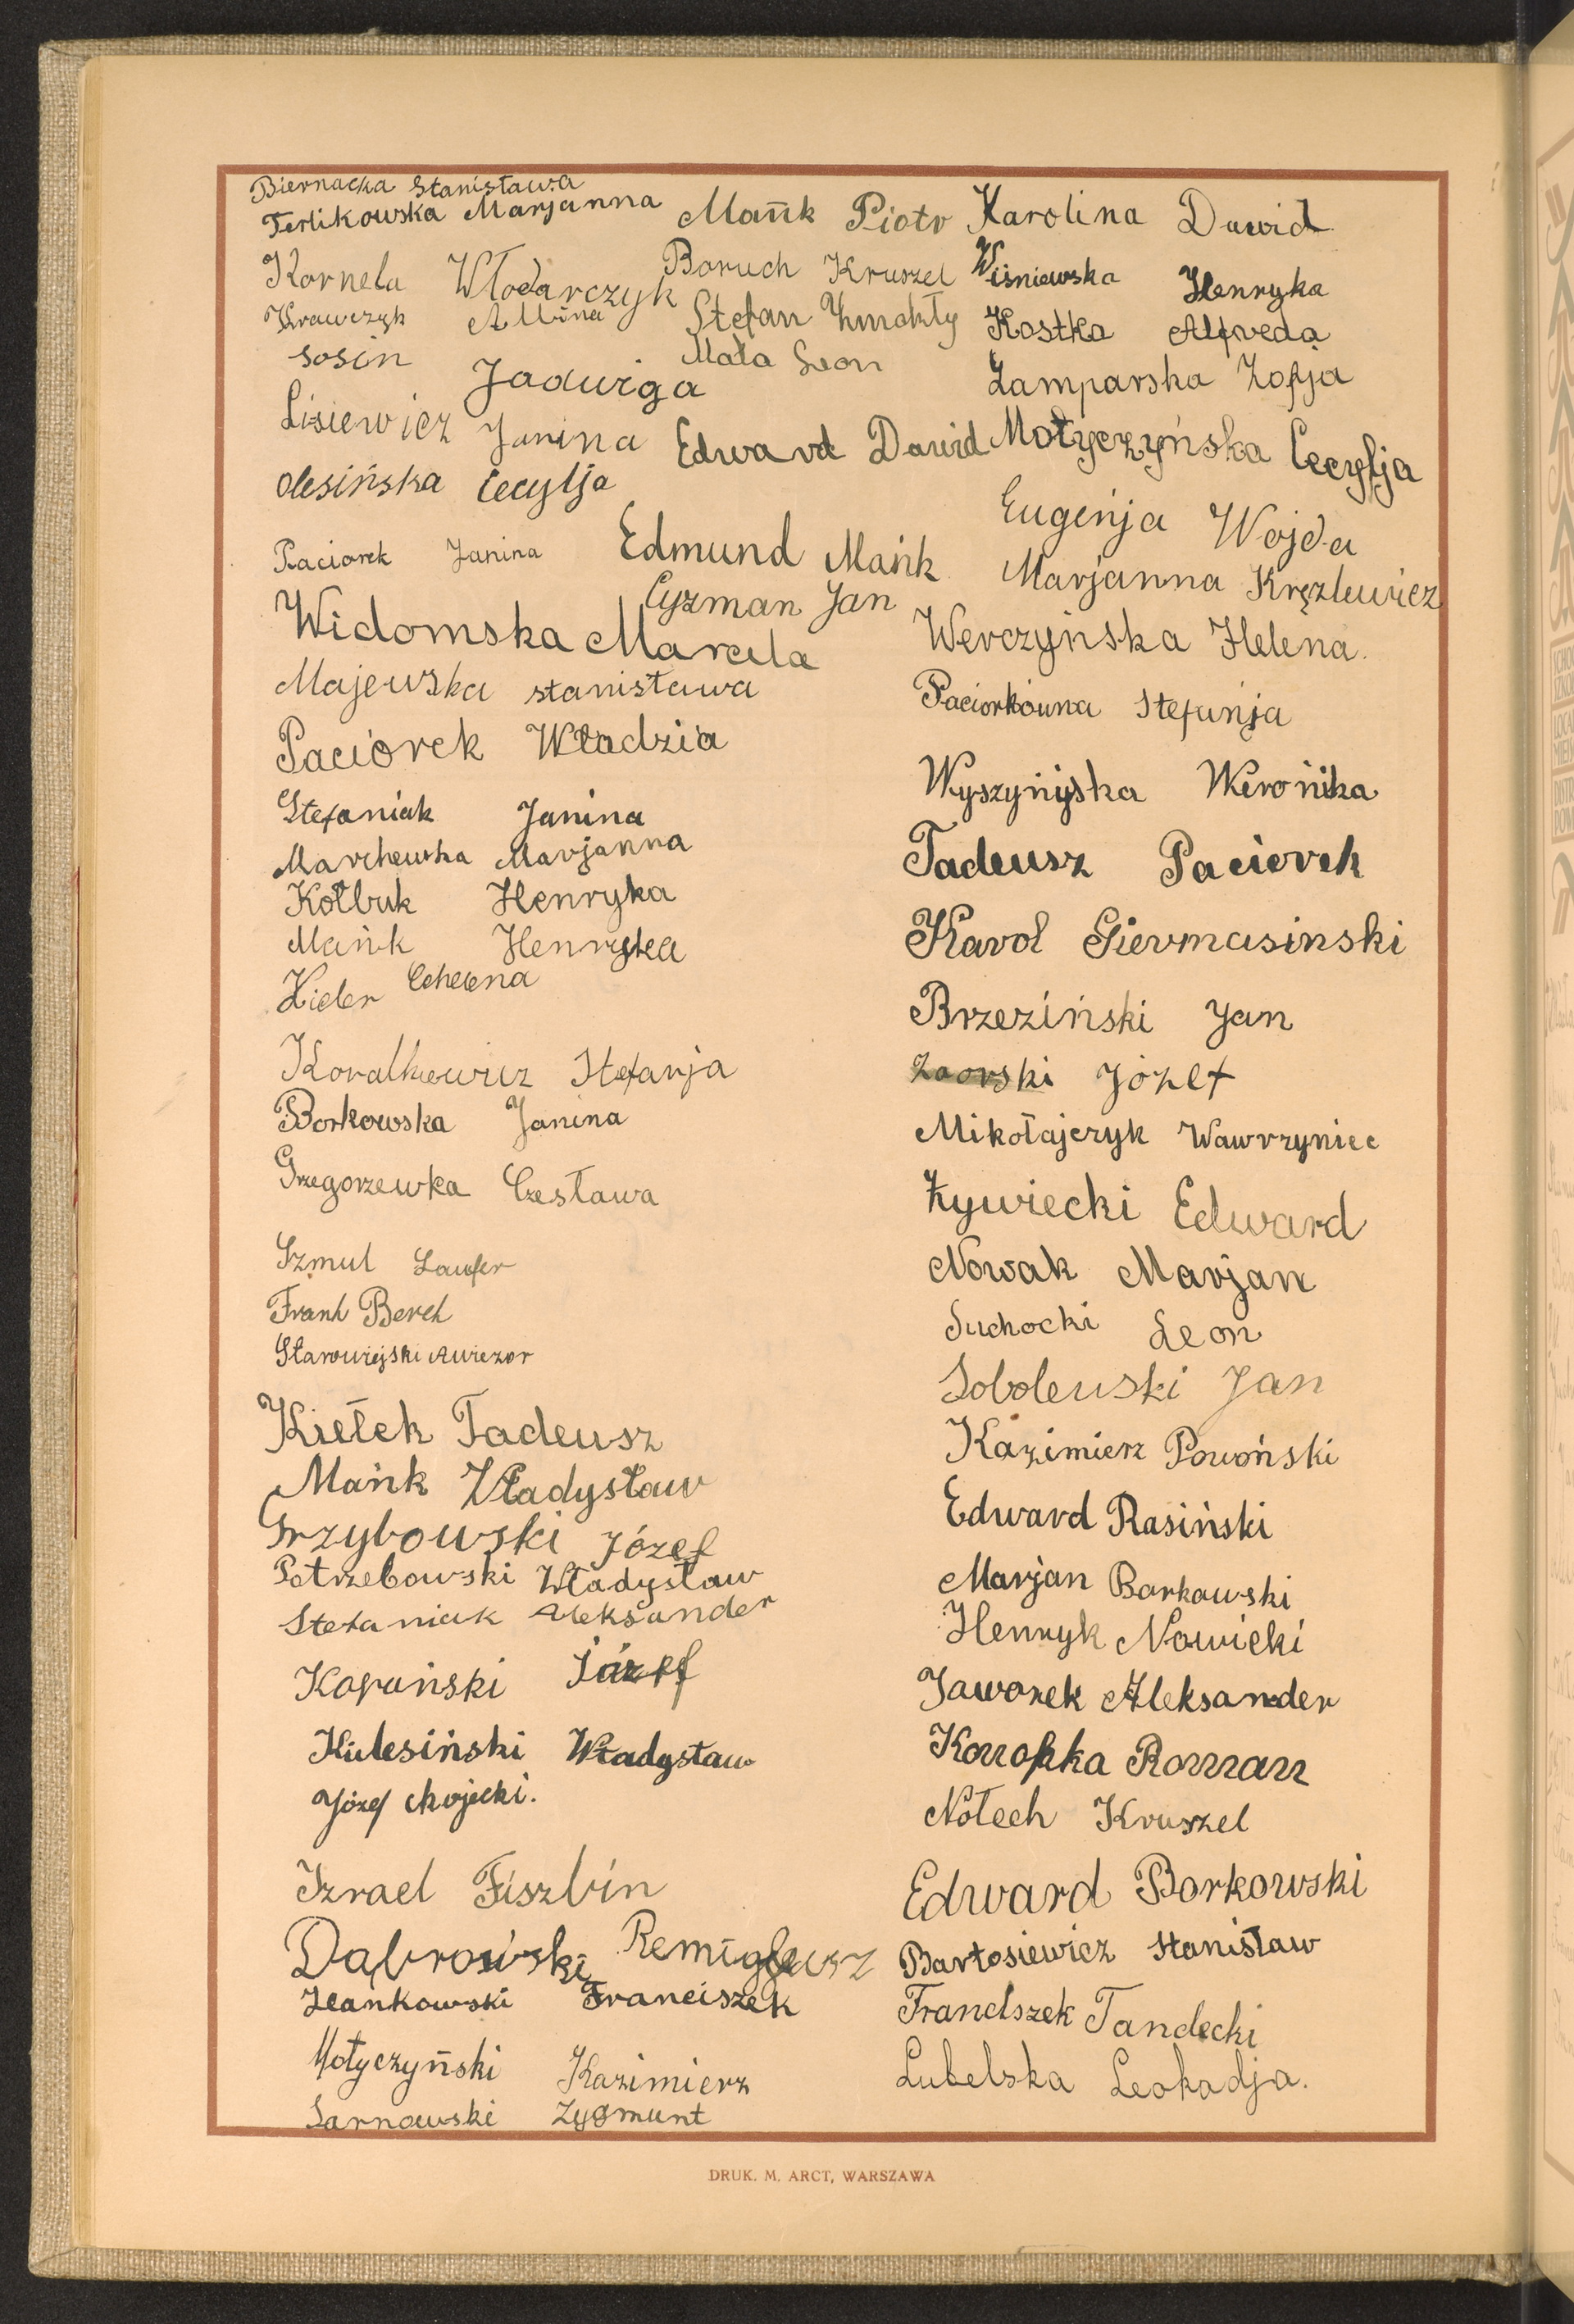 Biernacka Stanisława
Terlikowska Marjanna
Kornela Włodarczyk
Krawczyk Allina
Sosin Jadwiga
Lisiewicz Janina
Olesińska Cecylja
Paciorek Janina
Widomska Marcela
Majewska Stanisława
Paciorek Władzia
Stefaniak Janina
Marchewka Marjanna
Kołbuk Henryka
Mańk Henryka
Kieler
Koralkiewicz Stefanja
Borkowska Janina
Grzegorzewka Czesława
Szmul Laufer
Frank Berek
Starowiejski
Kiełek Tadeusz
Mańk Władysław
Grzybowski Józef
Potrzebowski Władysław
Stefaniak Aleksander
Kafański Józef
Kulesiński Władysław
Józef Chojecki.
Izrael Fiszbin
Dąbrowski Remigjusz
Jeankowski Franciszek
Motyczyński Kazimierz
Sarnowski Zygmunt
Mańk Piotr
Boruch Kruszel
Stefan Żmakły
Mała Leon
Edward Dawid
Edmund Mańk
Cyzman Jan
Karolina Dawid
Wiśniewska Henryka
Kostka Alfreda
Zamparska Zofja
Motyczyńska Cecylja
Eugenja Wojda
Marjanna Kręzlewicz
Werczyńska Helena.
Paciorkówna Stefanja
Wyszyńyska Weronika
Tadeusz Paciorek
Karol Giermasinski
Brzeziński Jan
Zaorski Józef
Mikołajczyk Wawrzyniec
Żywiecki Edward
Nowak Marjan
Suchocki Leon
Sobolewski Jan
Kazimierz Powoński
Edward Rasiński
Marjan Borkowski
Henryk Nowicki
Jaworek Aleksander
Konopka Roman
Notech Kruszel
Edward Borkowski
Bartosiewicz Stanisław
FrancIszek Tandecki
Lubelska Leokadja.
DRUK. M. ARCT, WARSZAWA